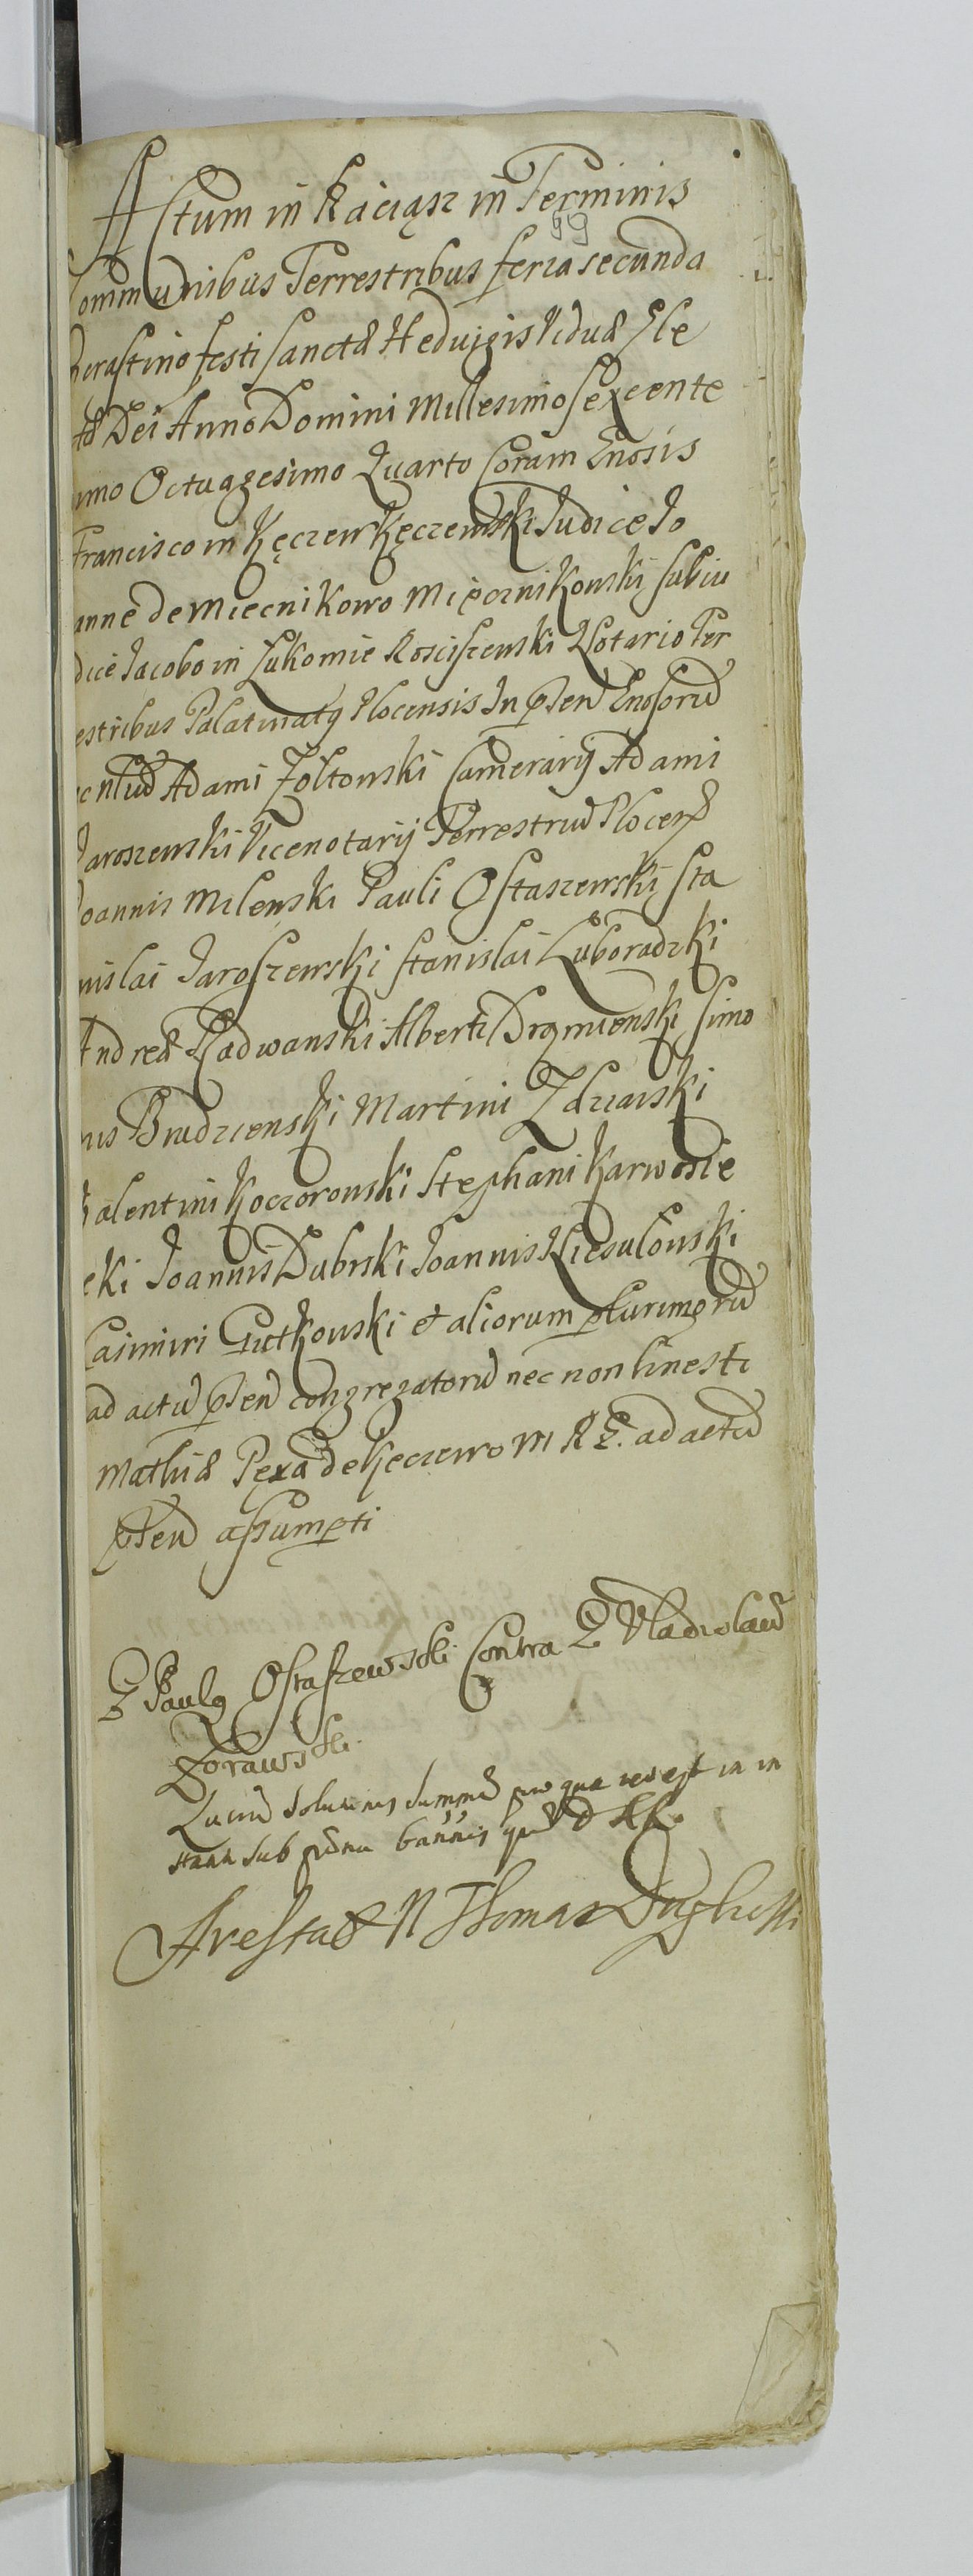 Actum in Raciąsz in Terminis
99
Communibus Terrestribus feria secunda
crastino festi sanctæ Heduigis Viduæ Ele
tæ Dei Anno Domini Millesimo sexcente
imo Octuagesimo Quarto Coram Gnosis
Francisco in Kęczew Kęczewski Judice Jo
anne de Miecnikowo Miecznikowski subiu
dice Jacobo in Lukomie Rosciszewski Notario Ter
estribus Palatinatq Plocensis In pñten Gnosorū
Adami Zołtowski Camerarij Adami
Jaroszewski Vicenotarij Terrestriū Plocen
Joannis Milewski Pauli Ostaszewski Sta
nislai Jaroszewski Stanislai Luboradzki
Andreæ Radwanski Alberti Drozmienski Simo
nis Brudzienski Martini Zdziarski
Valentini Koczorowski Stephani Karwosie
cki Joannis Dubrski Joannis
Casimiri Gutkowski et aliorum plurimorū
ad actū pñten congregatorū nec non hinesti
Mathiæ Pęxa de Keczewo M R G. ad actū
pñten assumpti
G Paulq Ostaszewski Contra G Vladislaū
Zorawski.
summæ pro qua in in
stañ sub
Arestaæ N Thomas